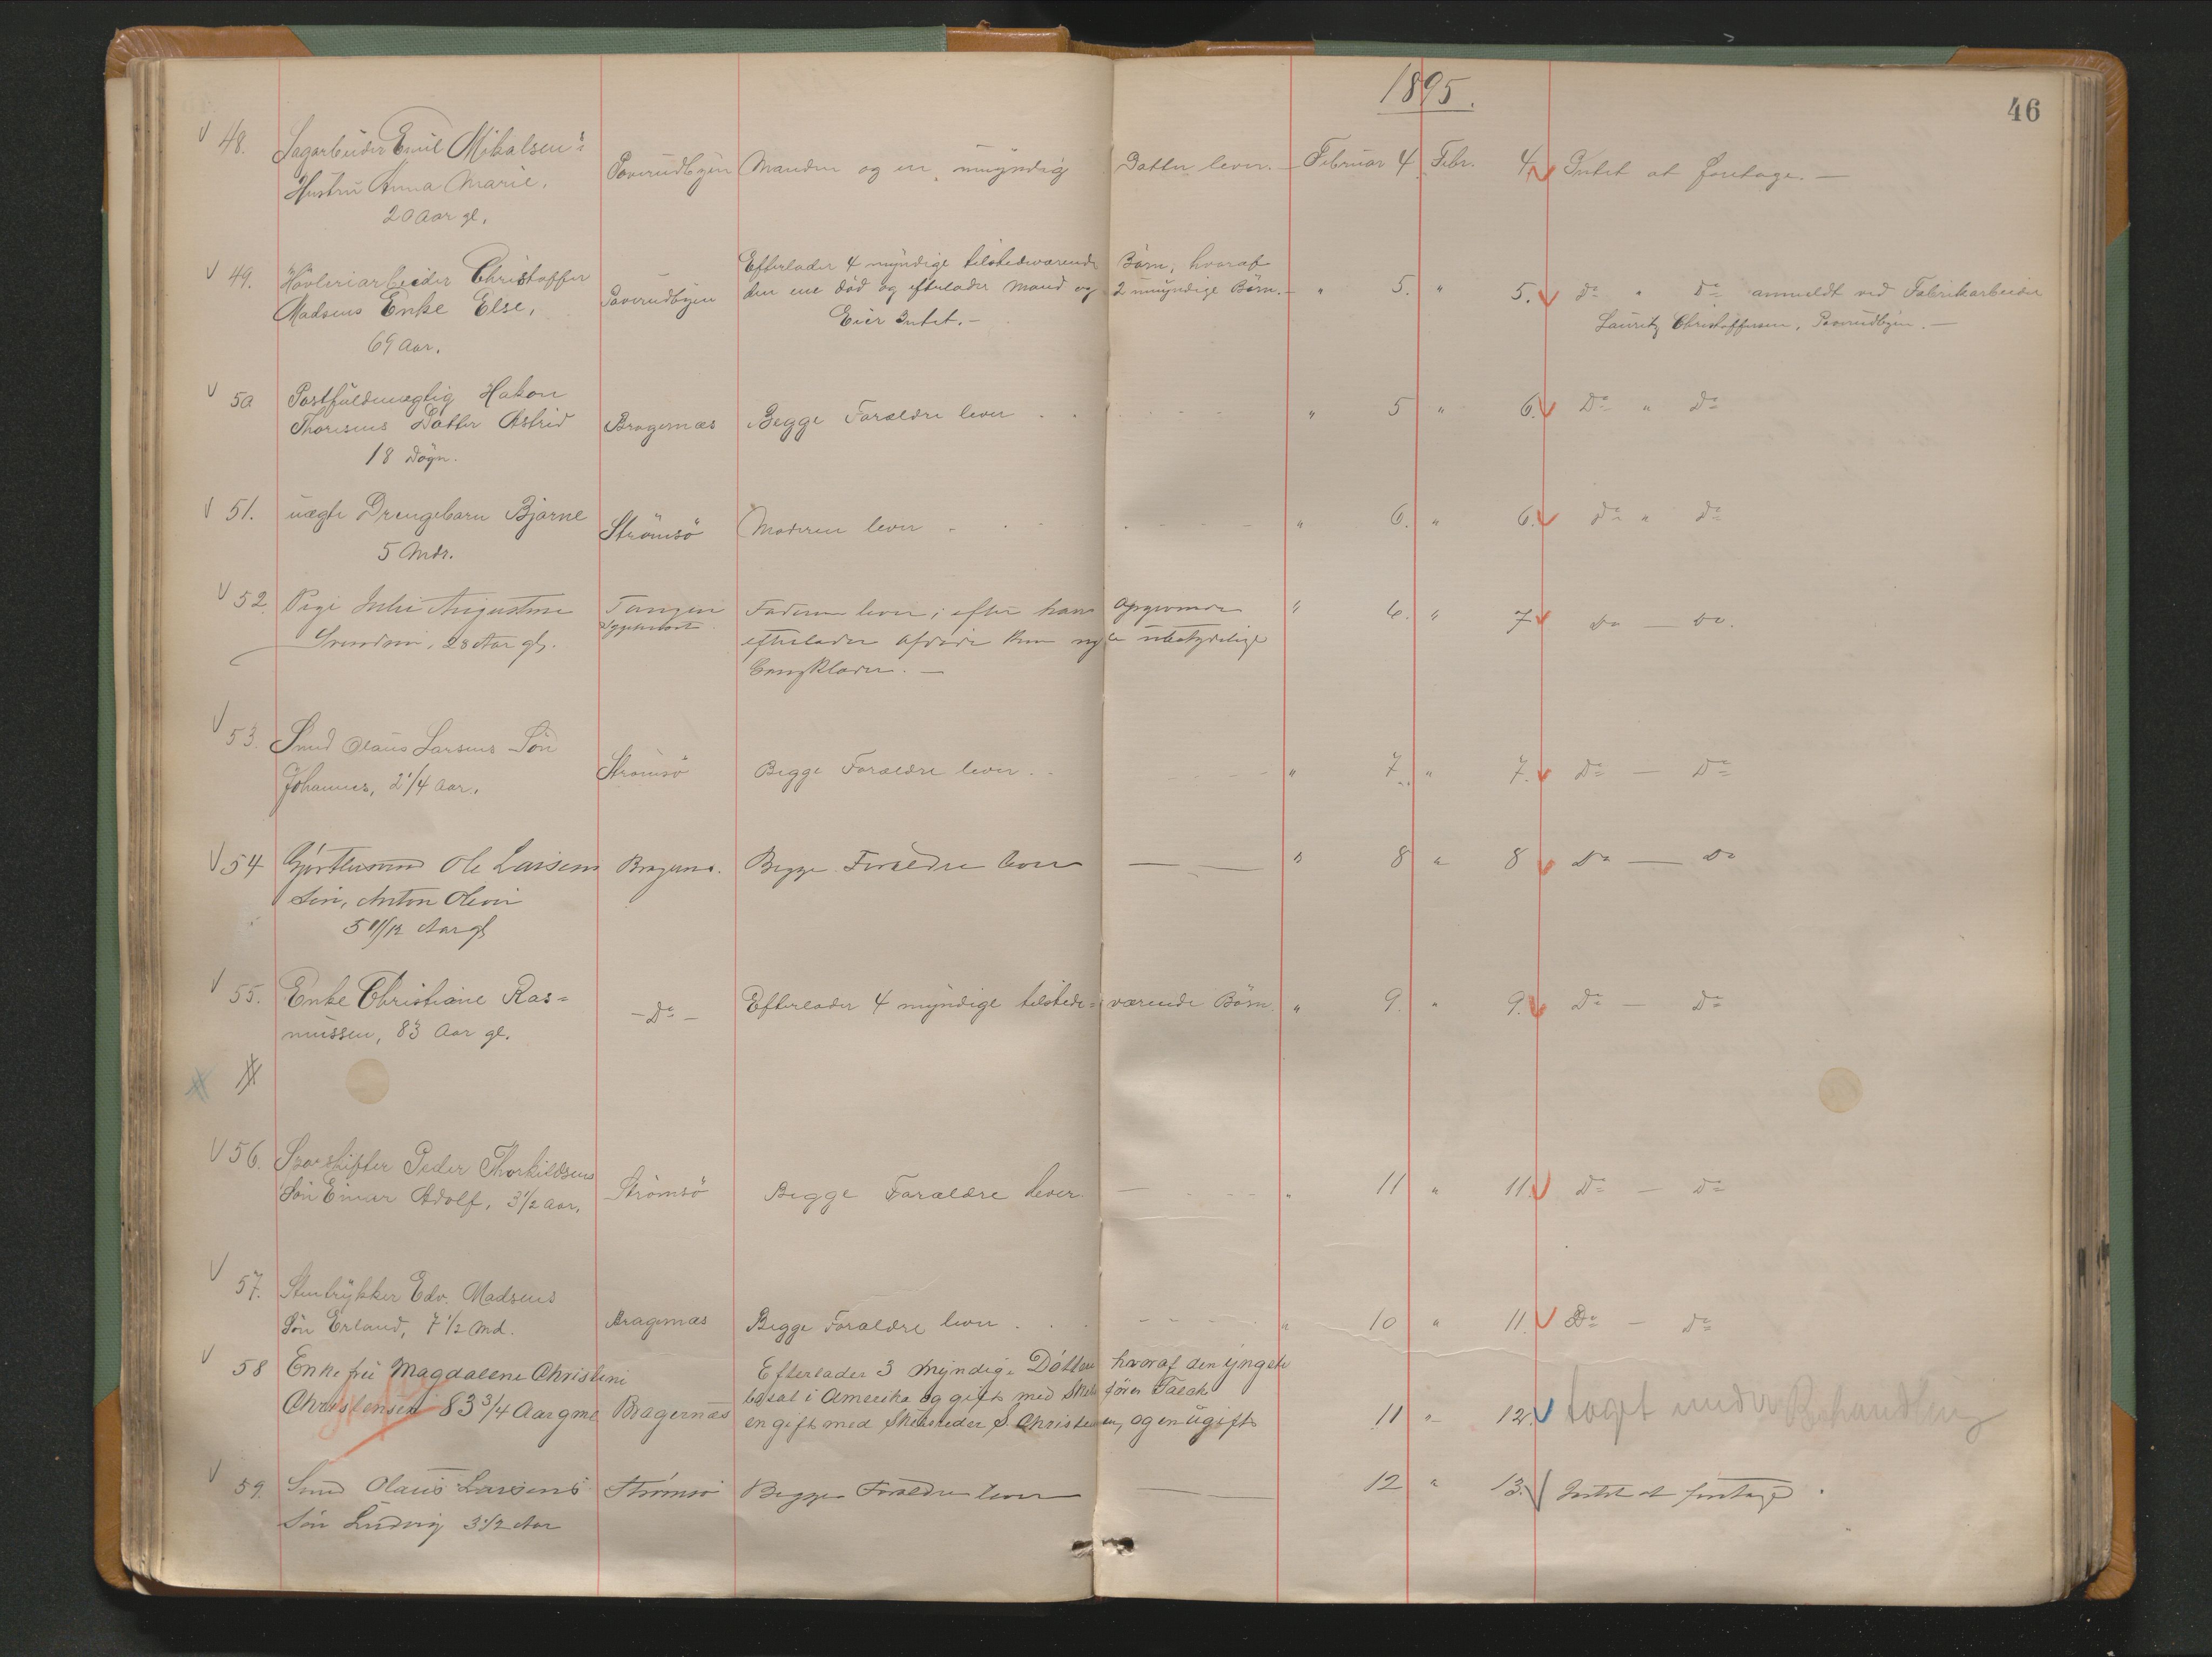 1895.
46
V 48. Sagarbeider Emil Mikalsen's
Hustru Anna Marie,
20 Aar gl.
Paverudbyen Manden og en umyndig Datter lever. – Februar 4 Febr. 4. Intet at foretage. –
V 49. Høvleriarbeider Christoffer
Madsens Enke Else,
69 Aar.
Paverudbyen
Efterlader 4 myndige tilstedeværende Børn, hvoraf
den ene død og efterlader Mand og 2 umyndige Børn. –
Eier Intet. –
" 5. " 5. Do " Do anmeldt ved Fabrikarbeider
Lauritz Christoffersen, Paverudbyen. –
V 50 Postfuldmægtig Hakon
Thoresens Datter Astrid
18 Døgn.
Bragernæs Begge Forældre lever " 5 " 6. Do " Do
V 51. uægte Drengebarn Bjarne
5 Mdr.
Strømsø Moderen lever " 6. " 6. Do " Do
V 52. Pige Julie Augustine
Svendsen, 28 Aar gl.
Tangen
Faderen lever; efter hans Opgivende
efterlader Afdøde kun nogle ubetydelige
Gangklæder. –
" 6. " 7 Do – Do.
V 53. Smed Olaus Larsens Søn
Johannes, 2 1/4 Aar.
Strømsø Begge Forældre lever. " 7. " 7. Do – Do
V 54 Gjørtlersvend Ole Larsens
Søn, Anton Oleus
5 11/12 Aar gl
Bragerns. Begge Forældre lever " 8 " 8 Do – Do
V 55. Enke Christiane Ras=
mussen, 83 Aar gl.
– Do – Efterlader 4 myndige tilstede=værende Børn. " 9. " 9. Do – Do
V 56. Sporskifter Peder Thorkildsens
Søn Einar Adolf, 3 1/2 Aar.
Strømsø Begge Forældre lever. " 11 " 11. Do – Do
V 57. Stentrykker Edv. Madsens
Søn Erland, 7 1/2 Md.
Bragernæs Begge Forældre lever " 10 " 11. Do – Do
V 58 Enkefru Magdalene Christine
Christensen 83 3/4 Aar gml
Bragernæs
Efterlader 3 Myndige Døttre hvoraf den yngste
bosat i Amerika og gift med Skibsfører Falch
en gift med Skibsreder S Christensen, og en ugift
11 " 12. taget under Behandling
V 59. Smed Olaus Larsens
Søn Ludvig 3 1/2 Aar
Strømsø Begge Forældre lever 12 " 13. Intet at foretage.